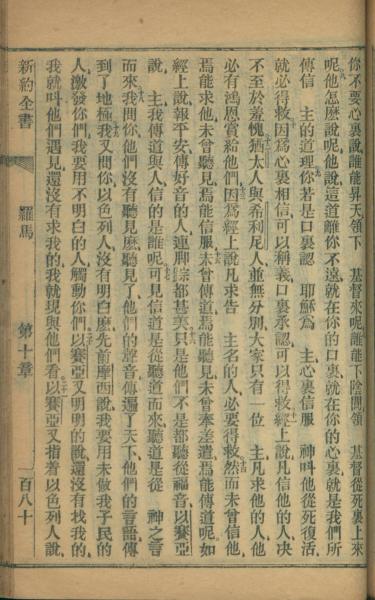 你不要心裏說誰能昇天領下　基督來呢誰能下陰間領　基督從死裏上來
呢他怎麽說呢他說這道離你不遠就在你的口裏就在你的心裏就是我們所
傳信　主的道理你若是口裏認　耶穌爲　主心裏信服　神叫他從死復活
就必得救因爲心裏相信可以稱義口裏承認可以得救經上說凡信他的人决
不至於羞愧猶太人與希利尼人並無分別大家只有一位　主凡求他的人他
必有鴻恩賞給他們因爲經上說凡求告　主名的人必要得救然而未曾信他
焉能求他未曾聽見焉能信服未曾傳道焉能聽見未曾奉差遣焉能傳道呢如
經上說報平安傳好音的人連脚踪都甚美只是他們不是都聽從福音以賽亞
說　主我傳道與人信的是誰呢可見信道是從聽道而來聽道是從　神之言
而來我問你他們沒有聽見麽聽見了他們的聲音傳遍了天下他們的言語傳
到了地極我又問你以色列人沒有明白麽先前摩西說我要用未做我子民的
人激發你們我要用不明白的人觸動你們以賽亞又明明的說還沒有找我的
我就叫他們遇見還沒有求我的我就現與他們看以賽亞又指着以色列人說
新約全書　羅馬　第十章　一百八十